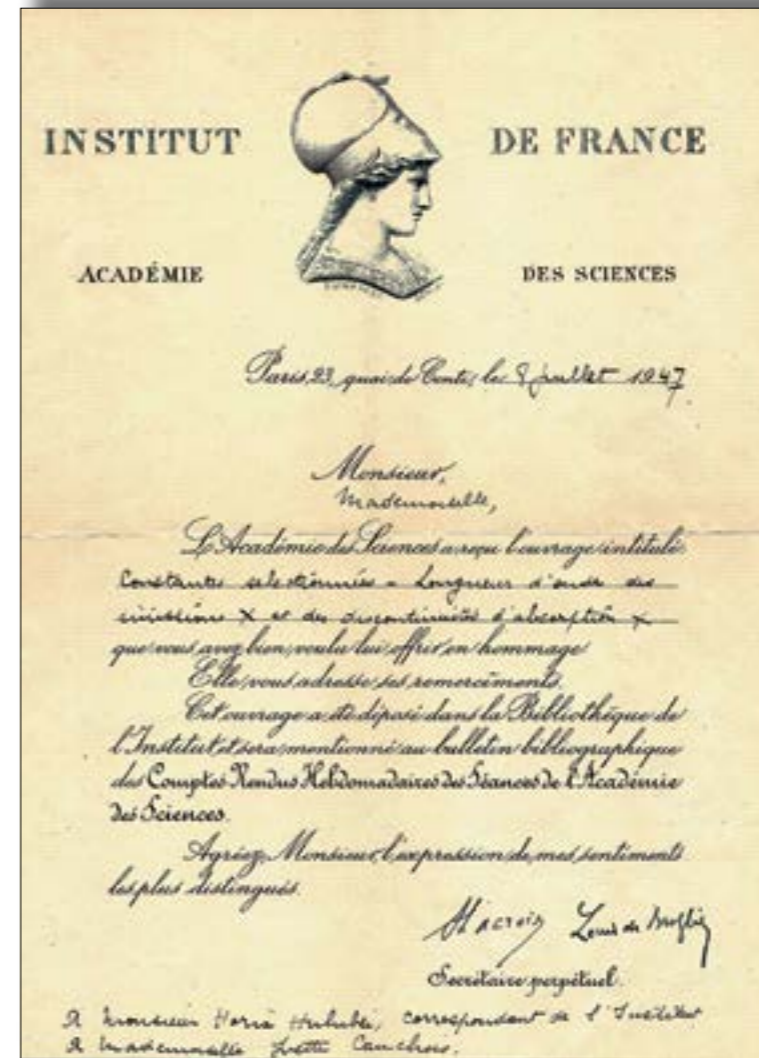 INSTITUT DE FRANCE
ACADÉMIE DES SCIENCES
Paris, 23, quai de Conti, le 8 juillet 1947
Monsieur,
Mademoiselle,
L'Académie des Sciences a reçu l'ouvrage intitulé
Constantes selectionnées - Longueur d'onde des
émissions X et des discontinuités d'absorption X
que vous avez bien voulu lui offrir en hommage
Elle vous adresse ses remerciments.
Cet ouvrage a été déposé dans la Bibliothèque de
l'Institut et sera mentionné au bulletin bibliographique
des Comptes Rendus Hebdomadaires des Séances de l'Académie
des Sciences.
Agréez, Monsieur, l'expression de mes sentiments
les plus distingués.
A Lacroix Louis de Broglie
Secrétaire perpétuel.
A Monsieur Horia Hulubei, correspondant de l'Institut
A Mademoiselle Yvette Cauchois.